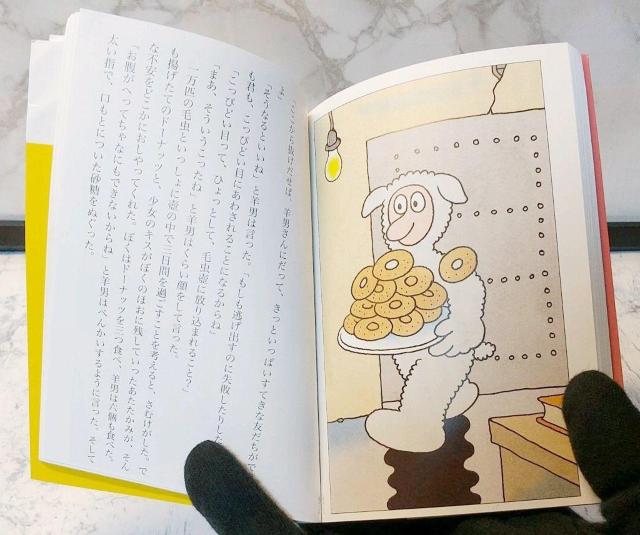 「ここから抜けだせば、羊男さんにだって、きっといっぱいすてきな友だちがで
よ」
「そうなるといいね」と羊男は言った。「もしも逃げ出すのに失敗したりした
も君も、こっぴどい目にあわされることになるからね」
「こっぴどい目って、ひょっとして、毛虫壺に放り込まれること？」
「まあ、そういうこったね」と羊男はくらい顔をして言った。
一万匹の毛虫といっしょに壺の中で三日間を過ごすことを考えると、さむけがした。で
も揚げたてのドーナッツと、少女のキスがぼくのほおに残していったあたたかみが、そん
な不安をどこかにおしやってくれた。ぼくはドーナッツを三つ食べ、羊男は六個も食べた。
「お腹がへってちゃなにもできないからね」と羊男はべんかいするように言った。そして
太い指で、口もとについた砂糖をぬぐった。